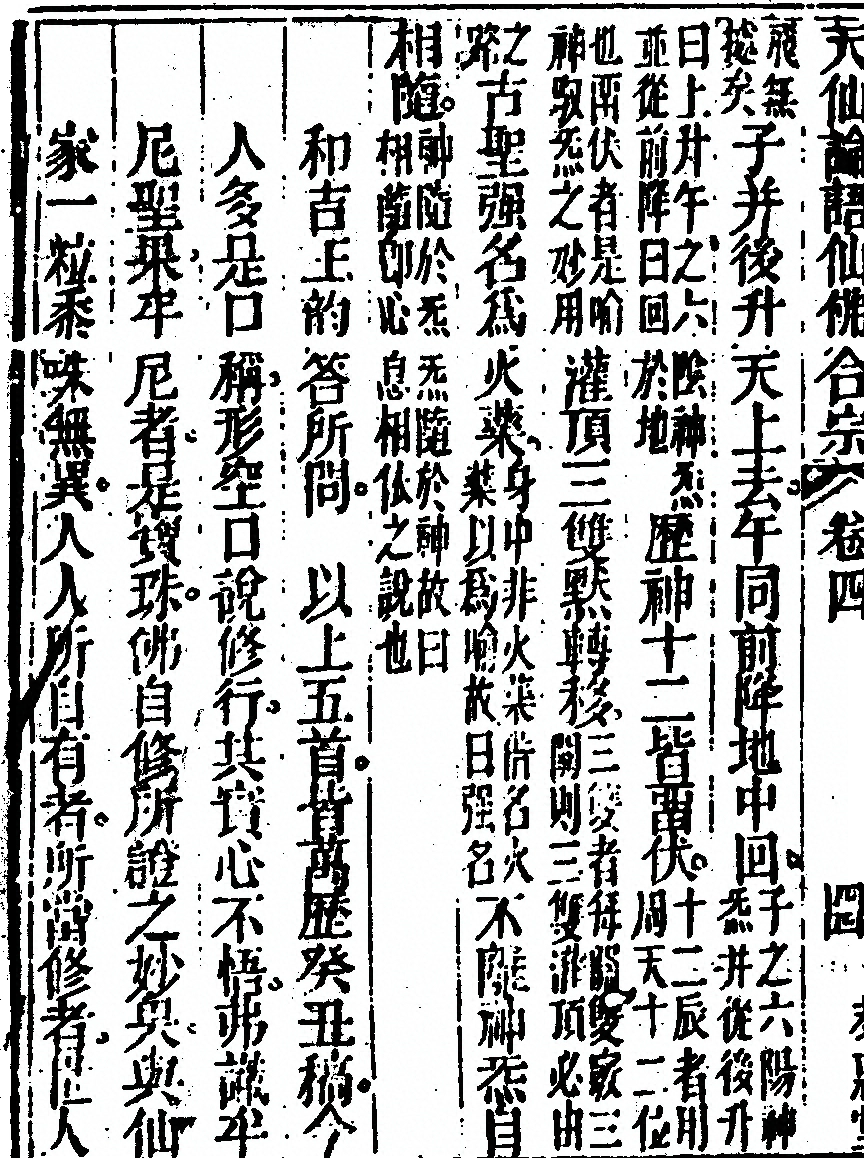 天仙論語仙佛合宗 卷四 四
竅無據矣子并後升天上去午同前降地中回子之六陽神炁并從後升
曰上升午之六陰神炁並從前降曰回於地歷神十二皆畱伏十二辰者用周天十二位
也畱伏者是喻神馭炁之妙用灌頂三雙默轉移三雙者每關雙竅三關則三雙灌頂必由
之路古聖强名爲火藥身中非火藥借名火藥以爲喻故曰强名不離神炁自
相隨神隨於炁炁隨於神故曰相隨卽心息相依之說也
和吉王的答所問 以上五首皆萬歷癸丑稿今
人多是口稱形空口說修行其實心不悟弗識牟
尼聖果牟尼者是寶珠佛自修所證之妙與與仙
家一粒黍珠無異人人所自有者所當修者世人